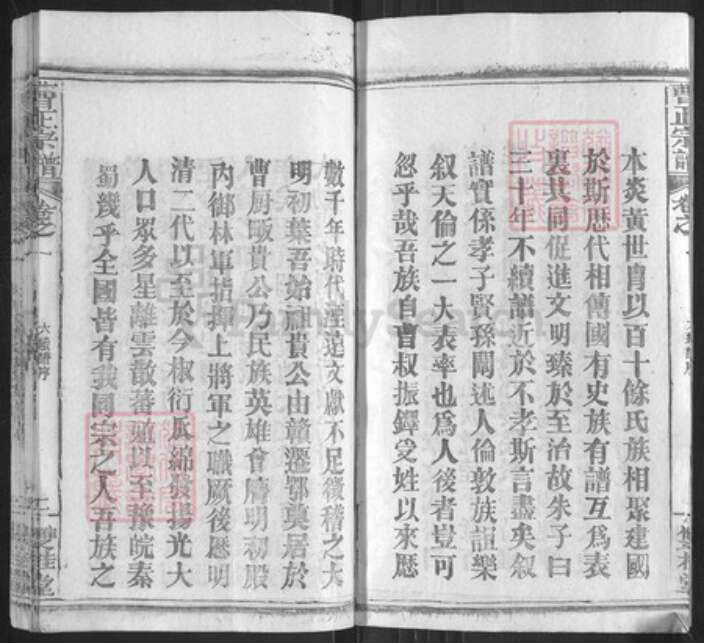 本炎黃世胄以百十餘氏族相聚建國
於斯歷代相傳國有史族有譜互為表
裏共同促進文明臻於至治故朱子曰
三十年不續譜近於不孝斯言盡矣叙
譜實係孝子賢孫闡述人倫敦族誼樂
叙天倫之一大表率也為人後者豈可
忽乎哉吾族自曹叔振鐸受姓以來歷
數千年時代湮遠文獻不足徵稽之大
明初葉吾始祖貴公由贛遷鄂奠居於
曹厨畈貴公乃民族英雄曾膺明初殿
內御林軍指揮上將軍之職厥後歷明
清二代以至於今椒衍瓜綿發揚光大
人口眾多星離雲散蕃迤以至豫皖秦
蜀幾乎全國皆有我同宗之人吾族之
曹氏宗譜
卷之一
六屆譜序
二
雙桂堂